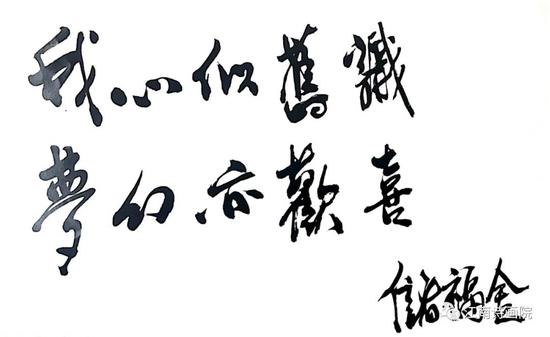 我心似舊識
夢幻亦歡喜
儲福金
江南诗画院